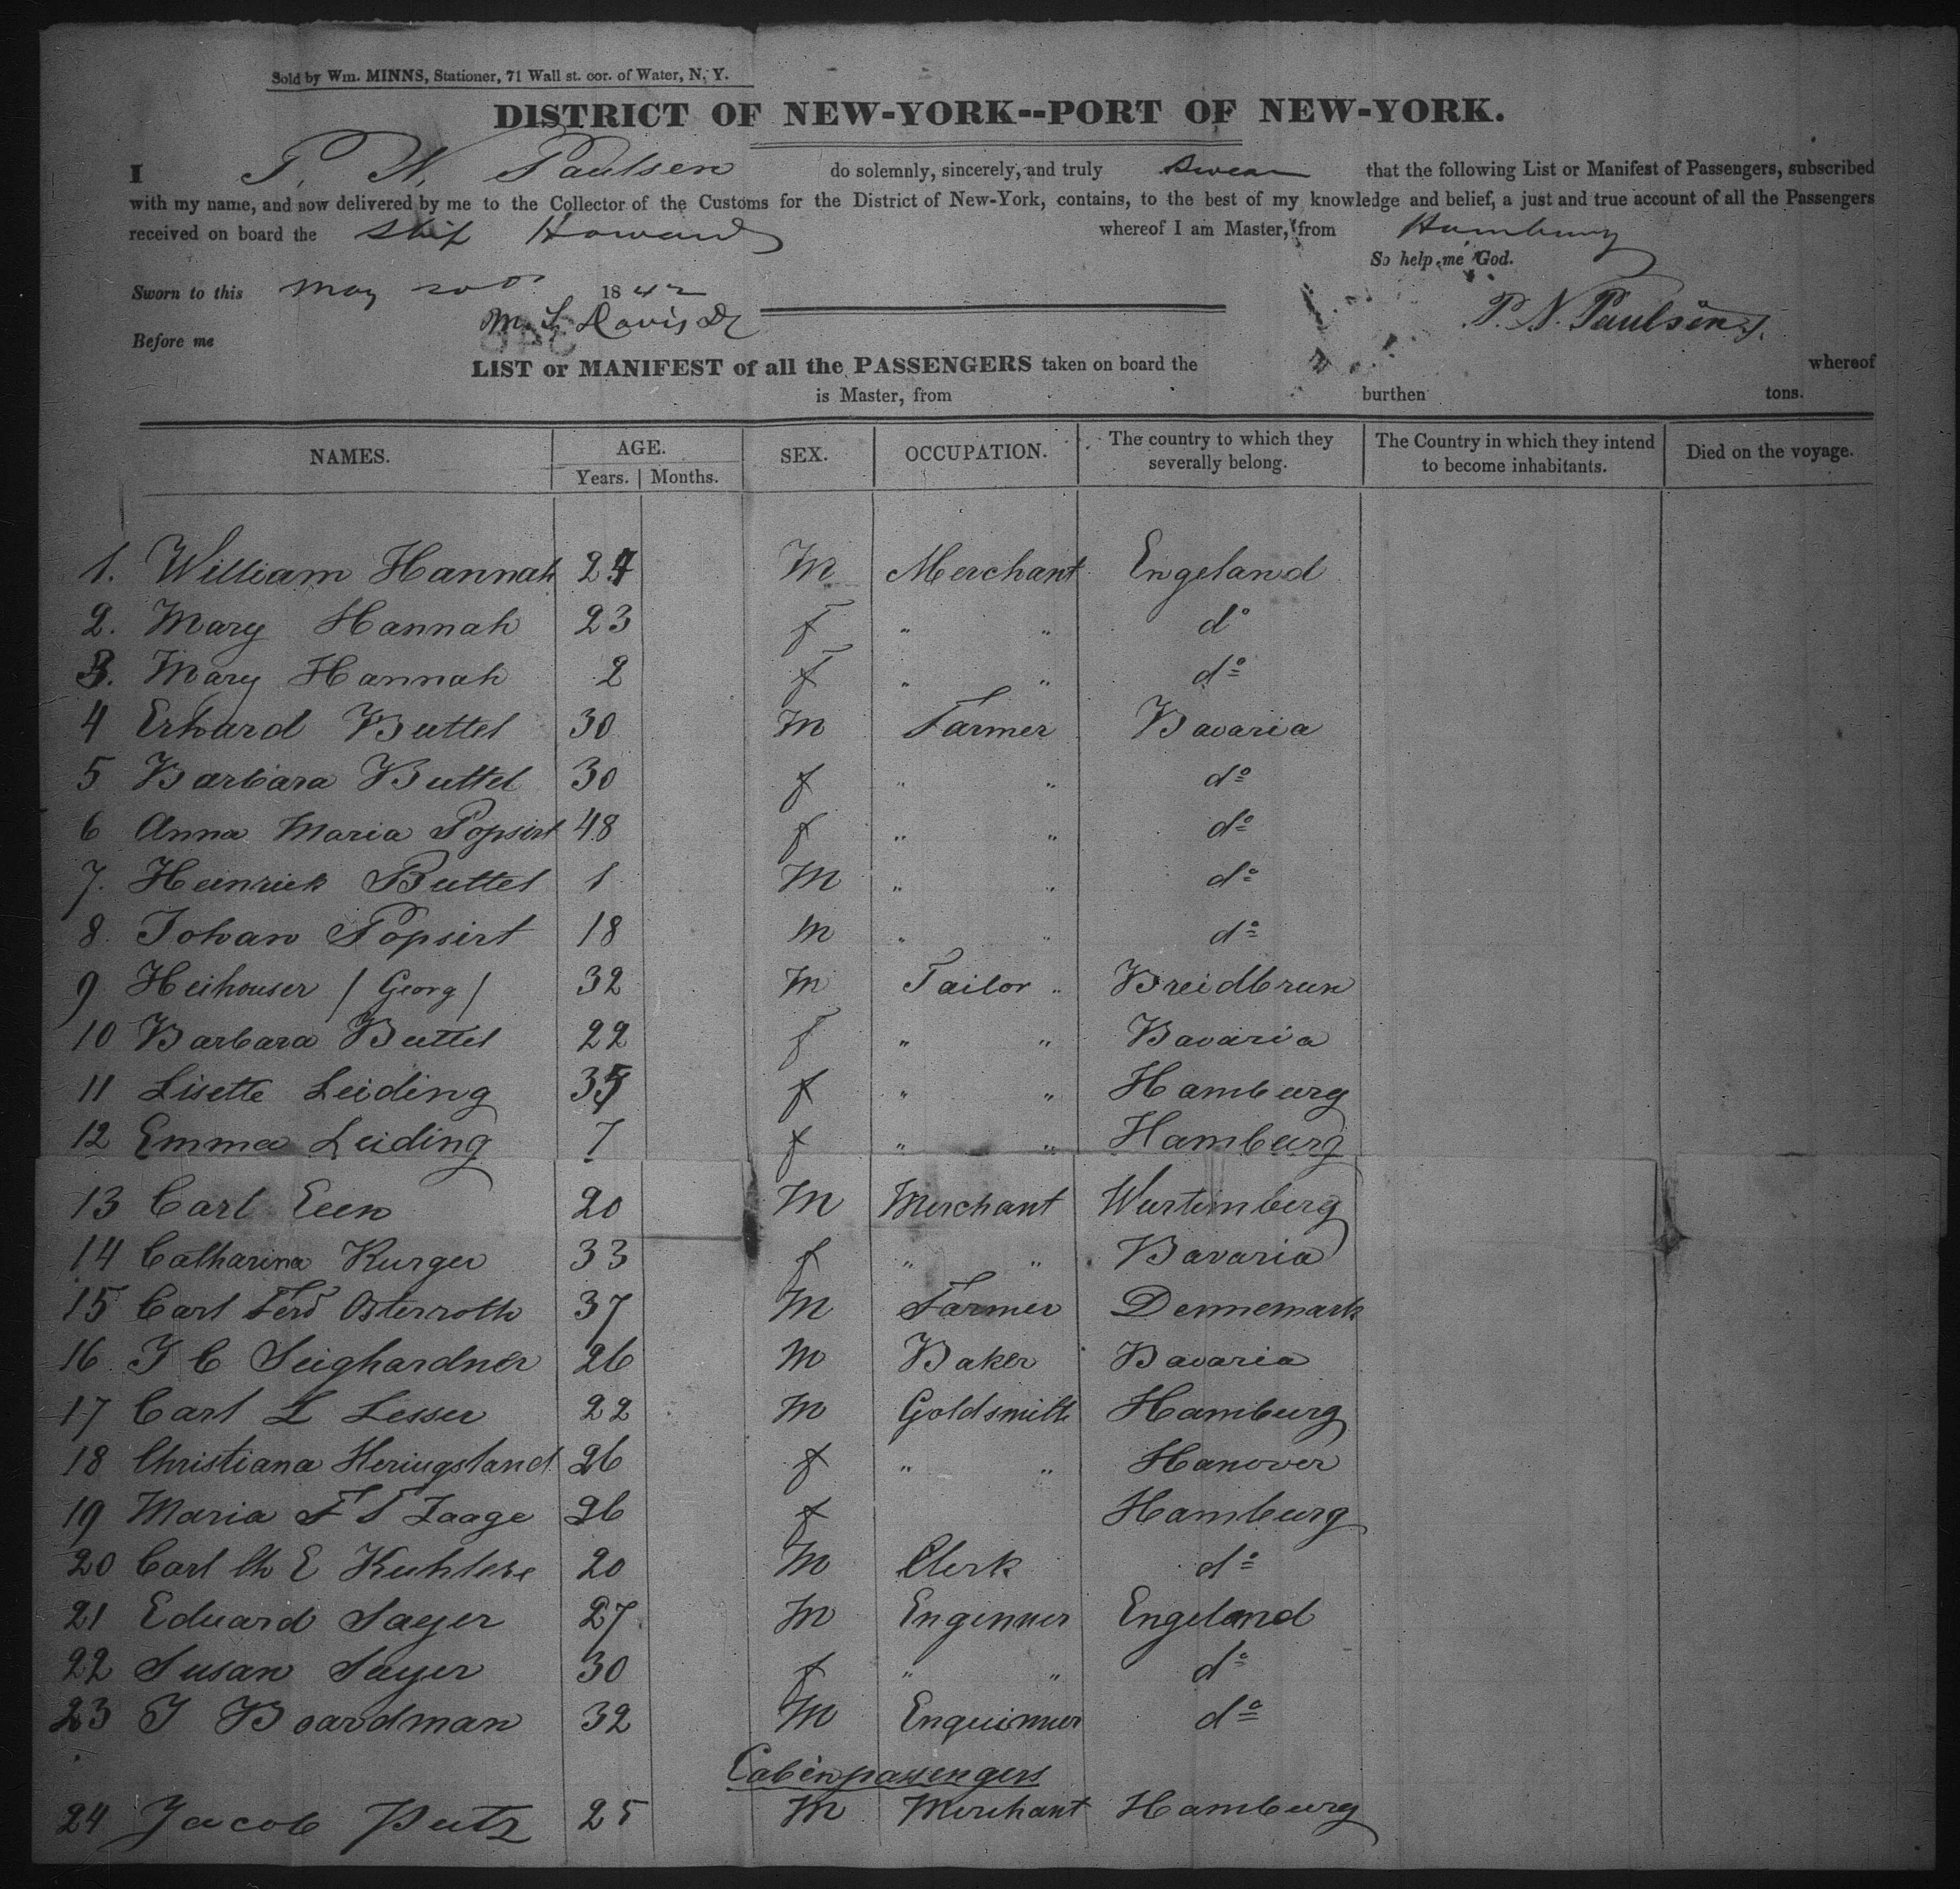 Sold by Wm. MINNS, Stationer, 71 Wall st. cor. of Water, N. Y.
DISTRICT OF NEW-YORK--PORT OF NEW-YORK.
I P. N. Paulsen do solemnly, sincerely, and truly swear that the following List or Manifest of Passengers, subscribed
with my name, and now delivered by me to the Collector of the Customs for the District of New-York, contains, to the best of my knowledge and belief, a just and true account of all the Passengers
received on board the Ship Howard whereof I am Master, from Hamburg
So help me God.
Sworn to this May 1842
P. N. Paulsen
Before me M. L. Davis
LIST or MANIFEST of all the PASSENGERS taken on board the whereof
is Master, from burthen tons.
NAMES. AGE. Years. Months. SEX. OCCUPATION. The country to which they severally belong. The Country in which they intend to become inhabitants. Died on the voyage.
1. William Hannah 24 M Merchant Engeland
2. Mary Hannah 23 f " " do
3. Mary Hannah 2 f " " do
4 Erhard Buttel 30 M Farmer Bavaria
5 Barbara Buttel 30 f " " do
6 Anna Maria Popsirt 48 f " " do
7. Heinrich Buttel 1 M " " do
8. Johan Popsirt 18 M " " do
9 Heihouser / Georg / 32 M Tailor " Breidbrun
10 Barbara Buttel 22 f " " Bavaria
11 Lisette Leiding 35 f " " Hamburg
12 Emma Leiding 7 f " " Hamburg
13 Carl Een 20 M Merchant Wurtemberg
14 Catharina Kurger 33 f " " Bavaria
15 Carl Ferd Osterroth 37 M Farmer Dennemark
16. J C Seighardner 26 M Baker Bavaria
17 Carl L Lesser 22 M Goldsmith Hamburg
18 Christiana Heringsland 26 f " " Hanover
19 Maria F Zaage 26 f Hamburg
20 Carl Ch E 20 M Clerk do
21 Eduard Sayer 27 M Engenner Engeland
22 Susan Sayer 30 f " " do
23 J Boardman 32 M Enguinner do
Cabinpassengers
24 Jacob Putz 25 M Merchant Hamburg